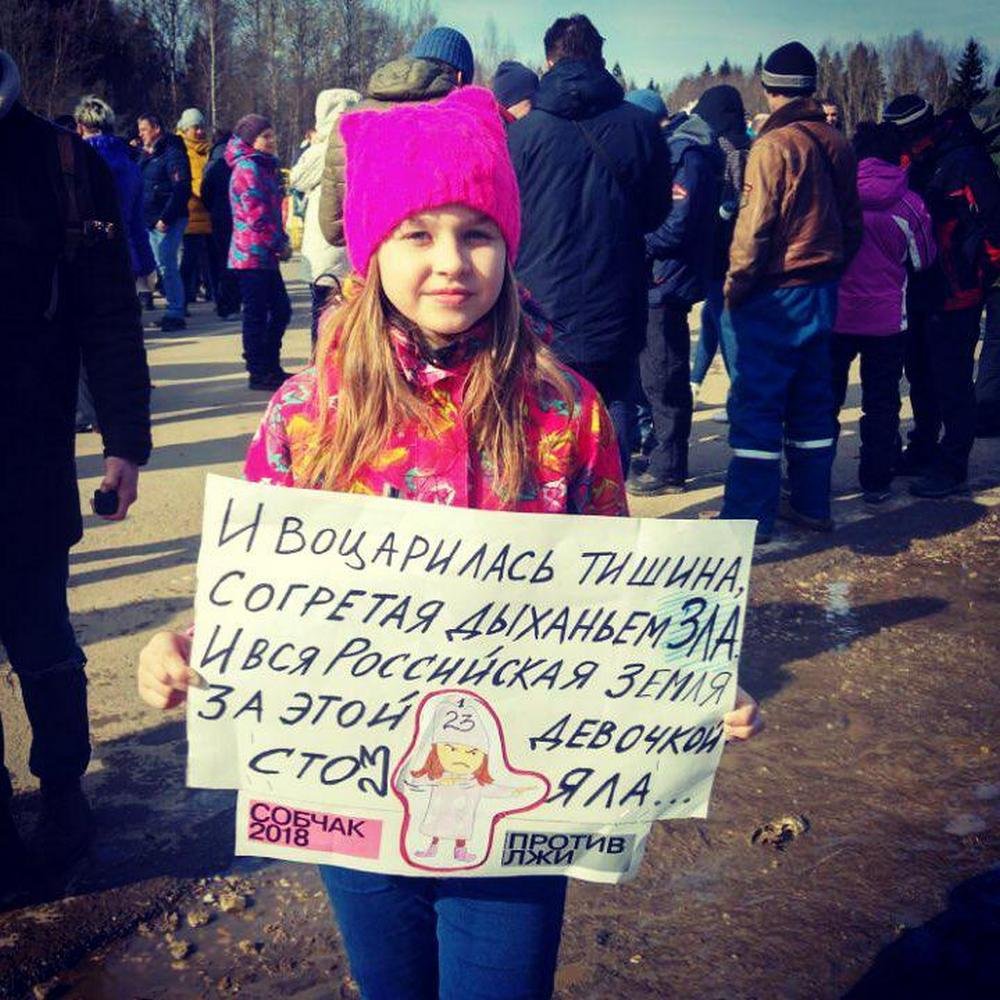 И ВОЦАРИЛАСЬ ТИШИНА,
СОГРЕТАЯ ДЫХАНЬЕМ ЗЛА.
И ВСЯ РОССИЙСКАЯ ЗЕМЛЯ
ЗА ЭТОЙ ДЕВОЧКОЙ
СТОЯЛА...
23
СОБЧАК
2018
ПРОТИВ
ЛЖИ